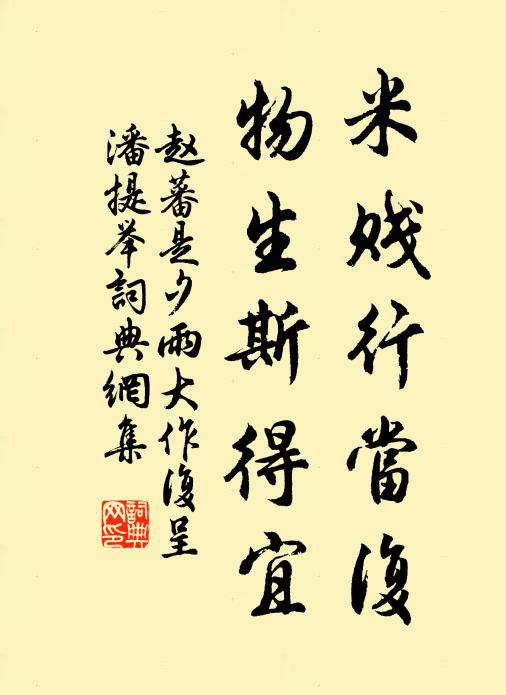 米贱行當復
物生斯得宜
赵蕃是夕雨大作復呈
潘提举詞典網集
詞典网印